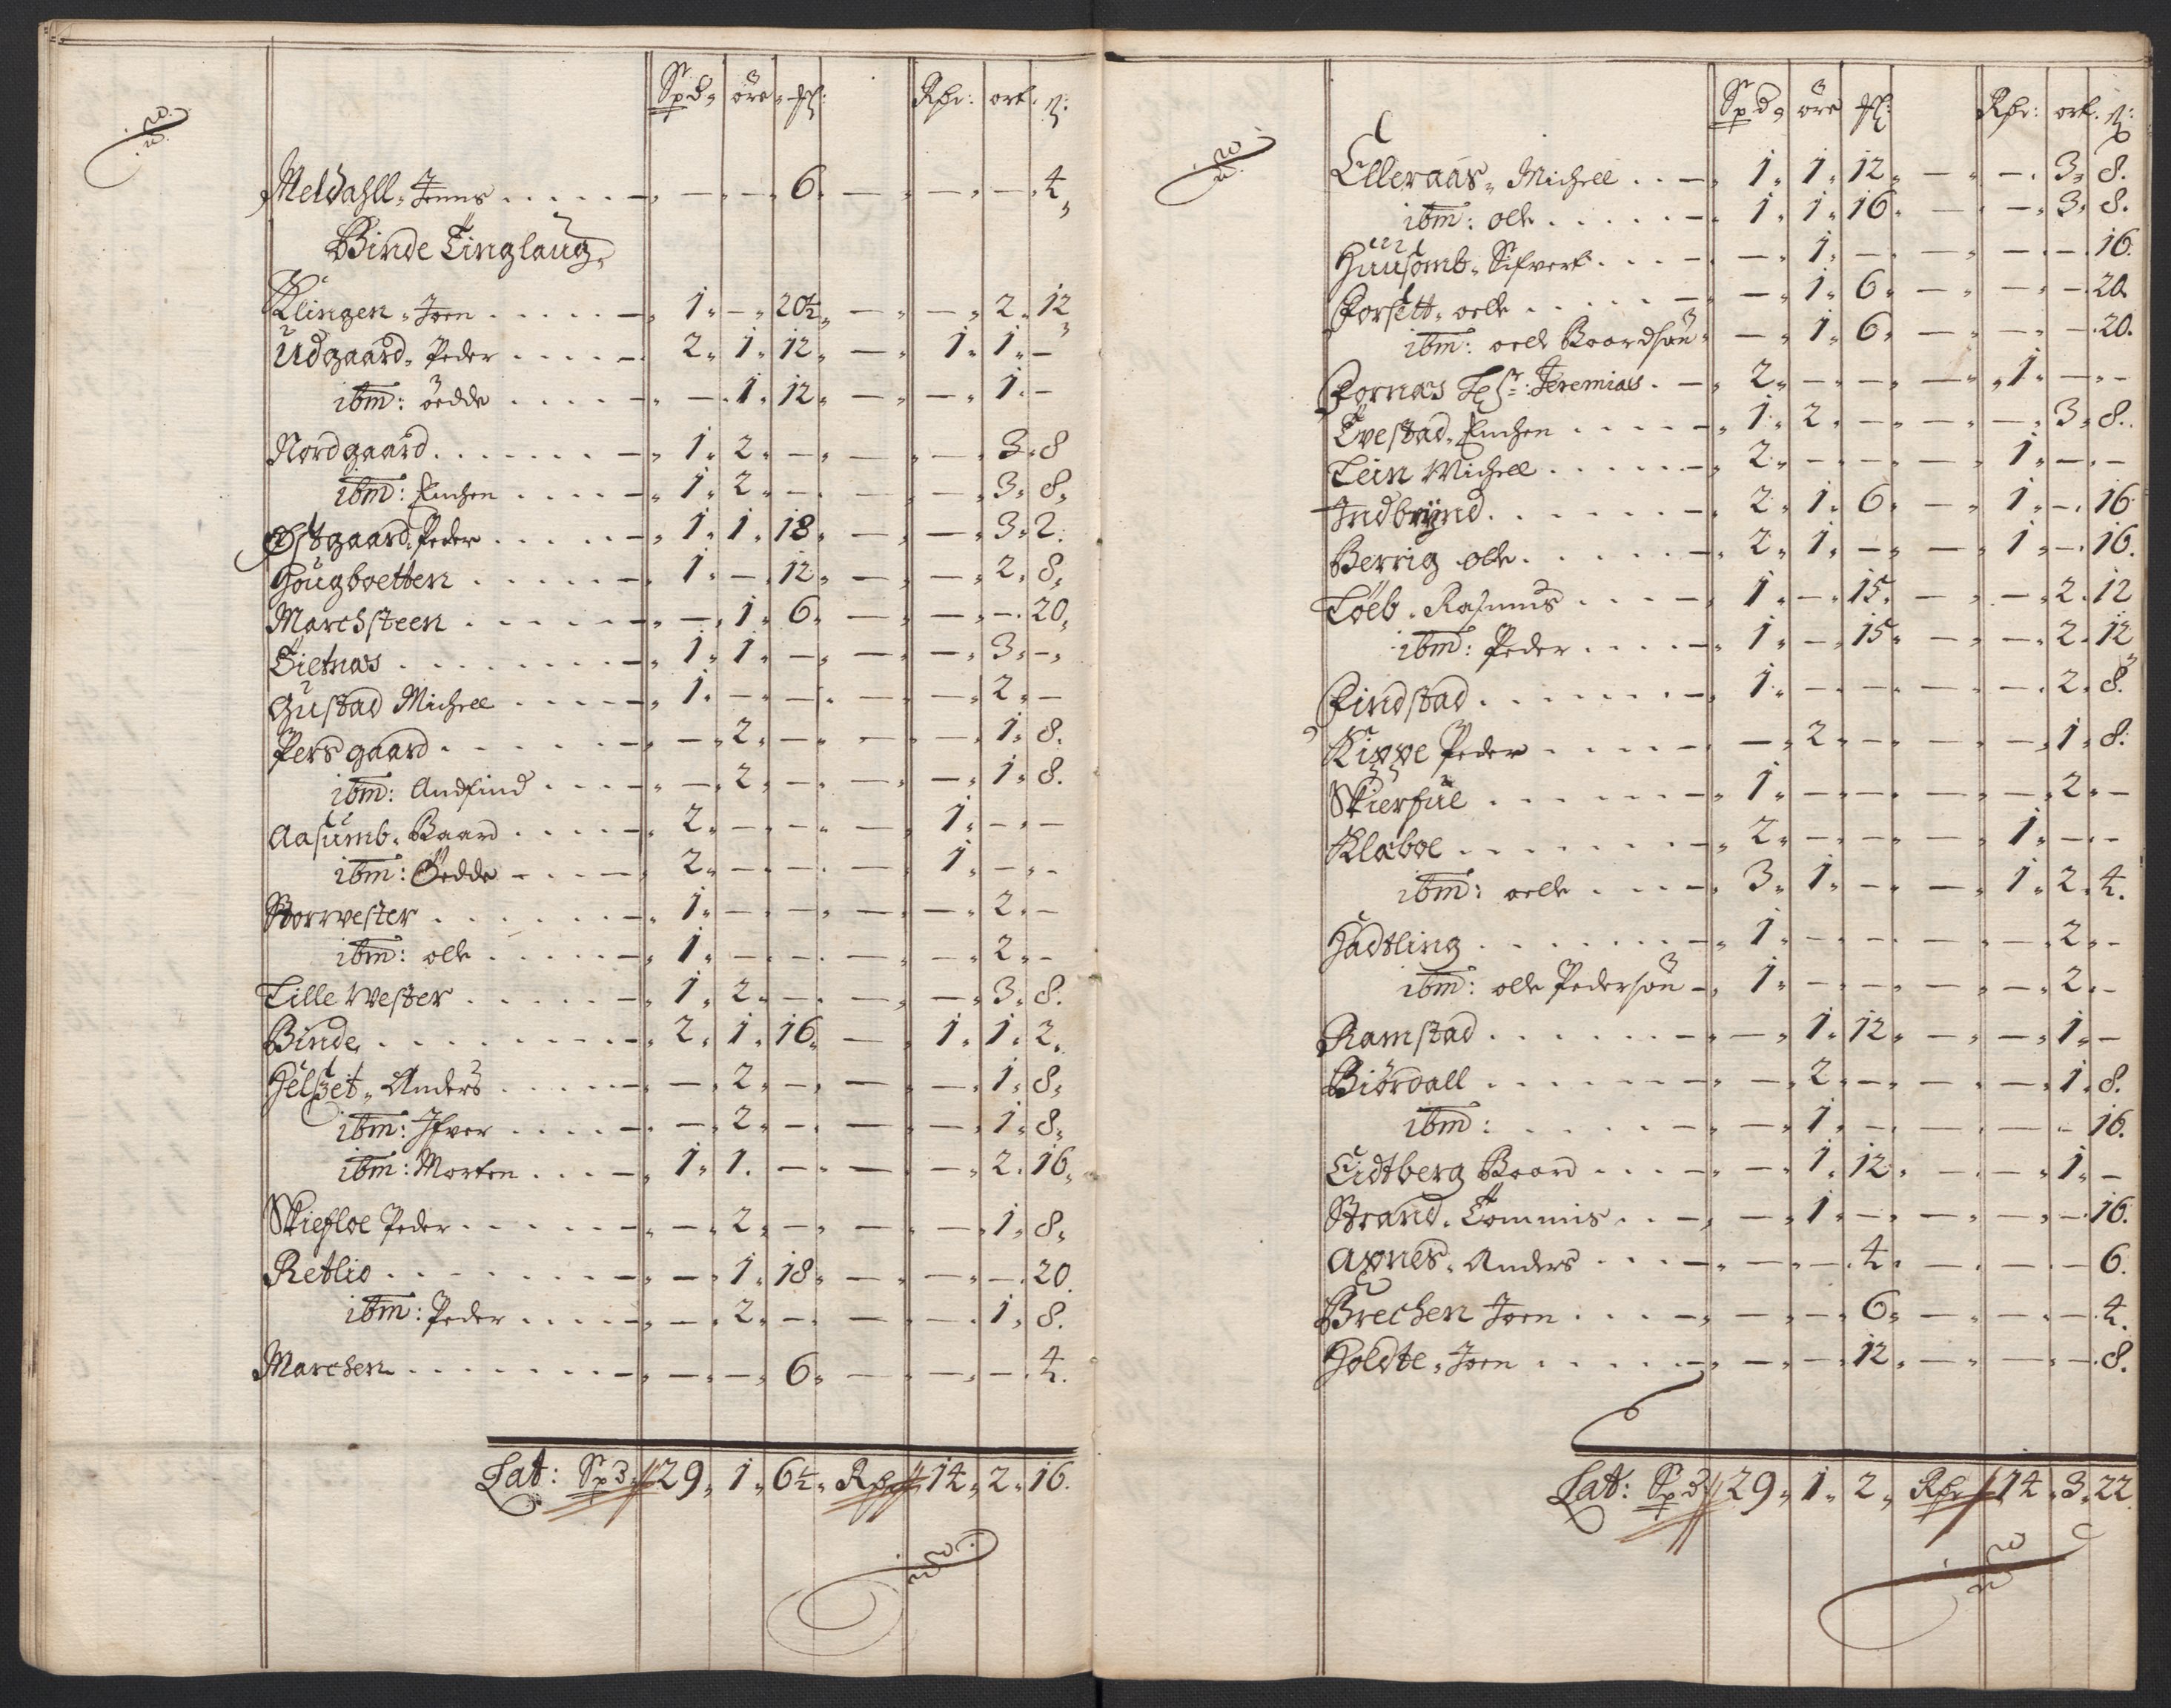 Spd, öre, Rdr: ort. ß:
Meldahll, Jenns . . . . . — — — 6, — — — 4,
Binde Tinglaug,
Klingen, Joen . . . . . 1, — 20½, — — 2, 12
Udgaard, Peder . . . . 2, 1, 12, — 1, 1, —
ibm: öedde . . . . — 1, 12, — — 1, —
Nordgaard . . . . . . . 1, 2, — — — 3, 8
ibm: Enchen . . . . 1, 2, — — — 3, 8,
Østgaard, Peder . . . . . 1, 1, 18, — — 3, 2.
Hougboetten . . . . . 1, — 12, — — 2, 8,
Marchsteen . . . . . . — 1, 6, — — — 20,
Tietnas . . . . . . . . 1, 1, — — — 3, —,
Gustad Michell . . . . . 1, — — — — 2, —
Persgaard . . . . . . — 2, — — — 1, 8.
ibm: Andfind . . . . — 2, — — — 1, 8.
Aasumb, Baard . . . . 2, — — — 1, — —
ibm: Öedde . . . . 2, — — — 1, — —
Storvester . . . . . . . 1, — — — — 2, —
ibm: olle . . . . . 1, — — — — 2, —
Lille Wester . . . . . . 1, 2, — — — 3, 8.
Binde . . . . . . . . 2, 1, 16, — 1, 1, 2,
Helset, Anders . . . . . — 2, — — — 1, 8,
ibm: Ifver . . . . . — 2, — — — 1, 8,
ibm: Morten . . . . 1, 1. — — — 2. 16,
Skiefloe Peder . . . . . — 2, — — — 1, 8,
Retlio . . . . . . . . — 1, 18, — — — 20.
ibm: Peder . . . . . — 2, — — — 1, 8.
Marchen . . . . . . . — — 6, — — — 4.
Lat: Spd 29, 1, 6½, Rdr 14, 2, 16.
Spd, öre Rdr: ort. ß:
Elleraas, Michell . . . 1, 1, 12, — — 3, 8.
ibm: olle . . . . . 1, 1, 16, — — 3, 8.
Huusomb, Sifvert . . . — 1, — — — — 16.
Forsett, oele . . . . . — 1, 6, — — — 20.
ibm: oele Baardsøn — 1, 6, — — — 20.
Fornas Jeremias . — 2, — — — 1, — —
Tvestad, Enchen . . . . . 1, 2, — — — 3, 8.
Lein Michell . . . . . . 2, — — — 1, — —
Indbrynd . . . . . . . 2, 1, 6, — 1, — 16
Berrig olle . . . . . . 2, 1, — — 1, — 16.
Töeb, Rasmus . . . . . 1, — 15, — — 2. 12
ibm: Peder . . . . . 1, — 15, — — 2. 12
Findstad . . . . . . . 1, — — — — 2, 8.
Kippe Peder . . . . . — 2, — — — 1, 8.
Skierfue . . . . . . . 1, — — — — 2, —
Klaboe . . . . . . . . 2, — — — 1, — —
ibm: oele . . . . 3, 1, — — 1, 2, 4.
Hadtling . . . . . . . 1, — — — — 2, —
ibm: olle Pedersøn — 1, — — — — 2, —
Ramstad . . . . . . . — 1, 12, — — 1, —
Biördall . . . . . . . — 2, — — — 1, 8.
ibm: . . . . . . . — 1, — — — — 16.
Eidtberg Baard . . . . — 1, 12, — — 1, —
Strand, Tommis . . . — 1, — — — — 16.
Apnes, Anders . . . . — — 4, — — — 6.
Brechen Joen . . . . — — 6, — — — 4.
Holdte, Joen . . . . . — — 12, — — — 8.
Lat: Spd 29, 1, 2, Rdr 14, 3, 22